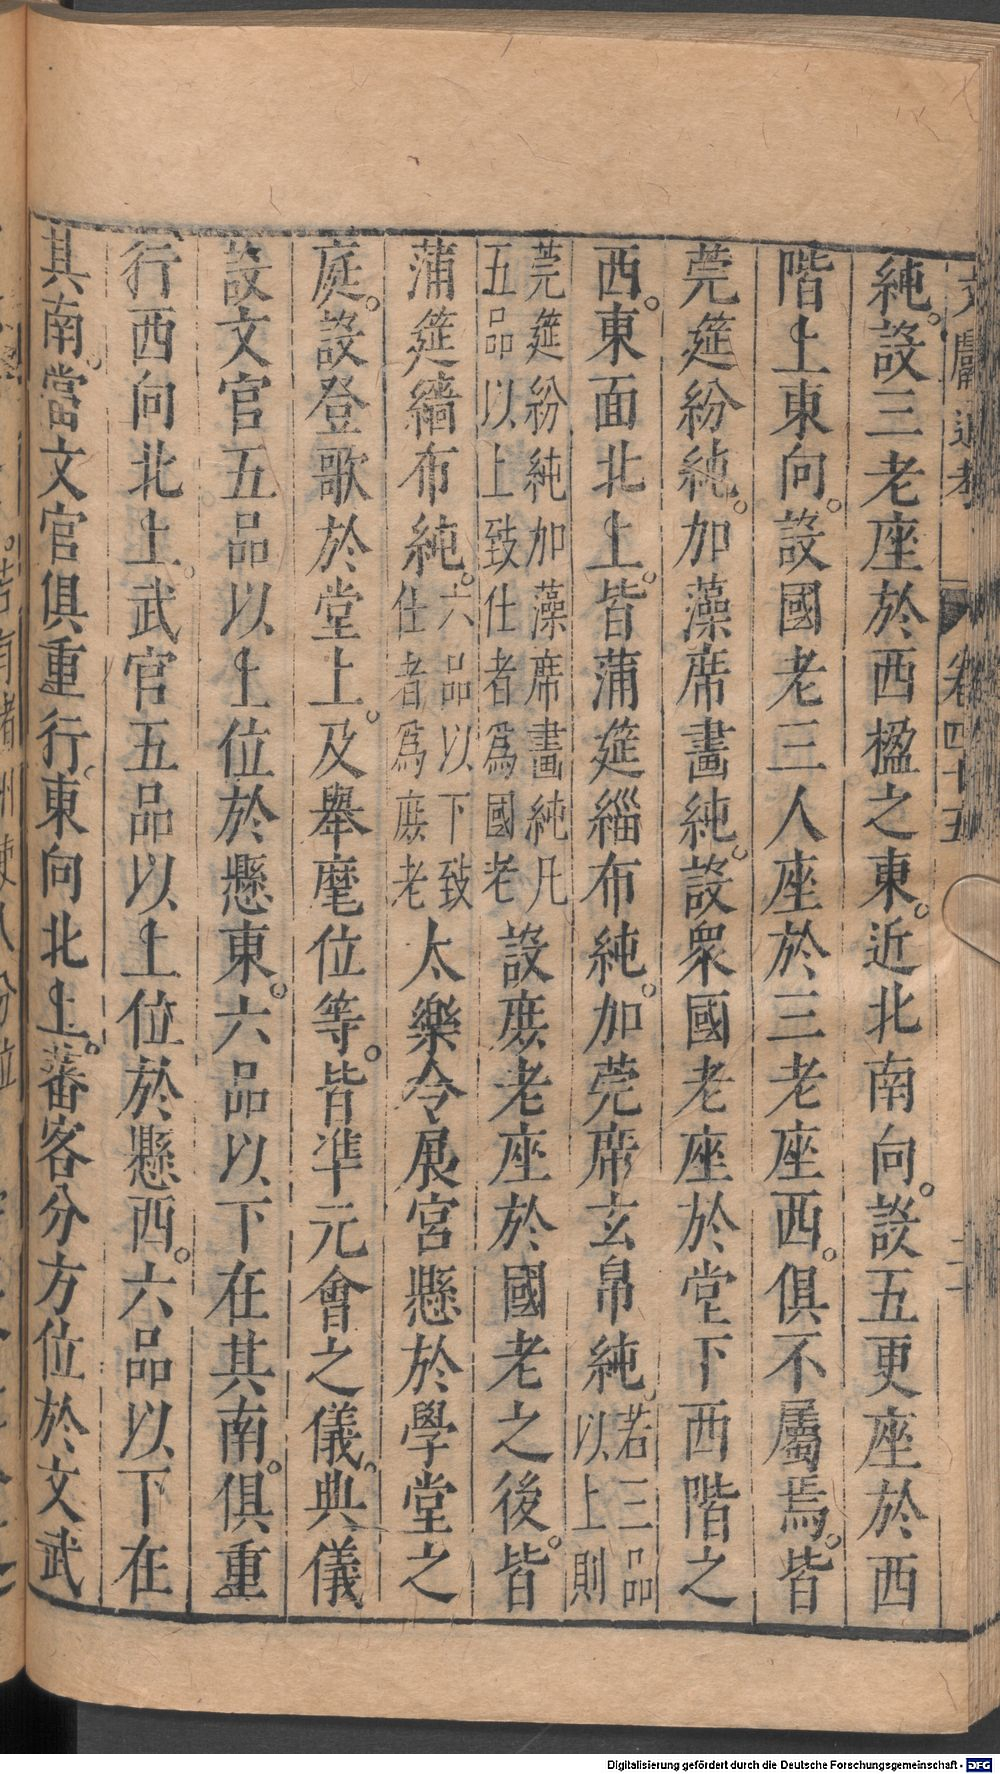 文獻通考 卷四十五
純設三老座於西楹之東近北南向設五更座於西
階上東向設國老三人座於三老座西俱不屬焉皆
莞筵紛純加藻席畫純設衆國老座於堂下西階之
西東面北上皆蒲筵緇布純加莞席玄帛純若三品以上則
莞筵紛純加藻席畫純凡五品以上致仕者爲國老設庶老座於國老之後皆
蒲筵緇布純六品以下致仕者爲庶老太樂令展宮懸於學堂之
庭設登歌於堂上及舉麾位等皆準元會之儀典儀
設文官五品以上位於懸東六品以下在其南俱重
行西向北上武官五品以上位於懸西六品以下在
其南當文官俱重行東向北上蕃客分方位於文武
Digitalisierung gefördert durch die Deutsche Forschungsgemeinschaft - DFG